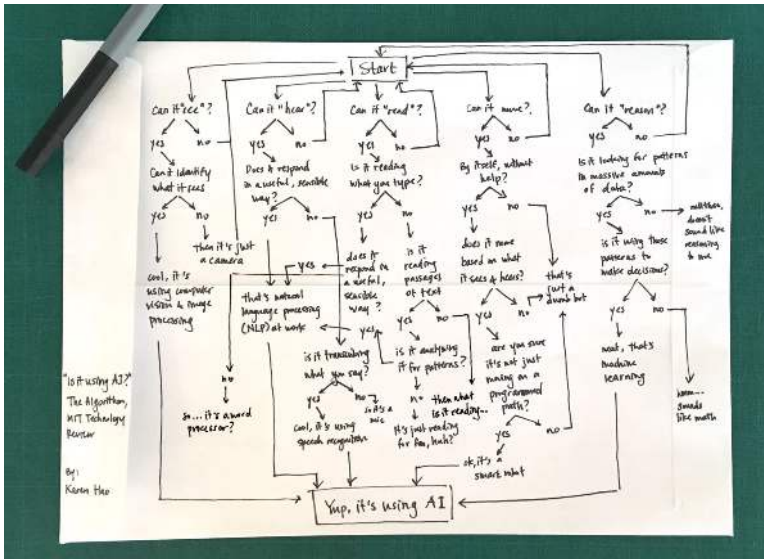 Start
Can it "see"?
yes
no
Can it identify
what it sees
yes
no
then it's just
a camera
cool, it's
using computer
vision & image
processing
Can it "hear"?
yes
no
Does it respond
in a useful, sensible
way?
yes
no
that's natural
language processing
(NLP) at work
is it transcribing
what you say?
yes
no
so it's a
mic
cool, it's using
speech recognition
Can it "read"?
yes
no
is it reading
what you type?
yes
no
does it
respond in
a useful,
sensible
way?
yes
no
so...it's a word
processor?
is it
reading
passages
of text
yes
no
is it analyzing
it for patterns?
yes
no
then what
is it reading...
It's just reading
for fun, huh?
Can it move?
yes
no
By itself, without
help?
yes
no
does it move
based on what
it sees & hears?
yes
no
that's
just a
dumb bot
are you sure
it's not just
moving on a
programmed
path?
yes
no
ok, it's a
smart
Can it "reason"?
yes
no
Is it looking for patterns
in massive amounts
of data?
yes
no
doesn't
sound like
reasoning
to me
is it using those
patterns to
make decisions?
yes
no
neat, that's
machine
learning
hmm...
sounds
like math
Yup, it's using AI
"Is it using AI?"
The Algorithm,
MIT Technology
Review
By:
Karen Hao